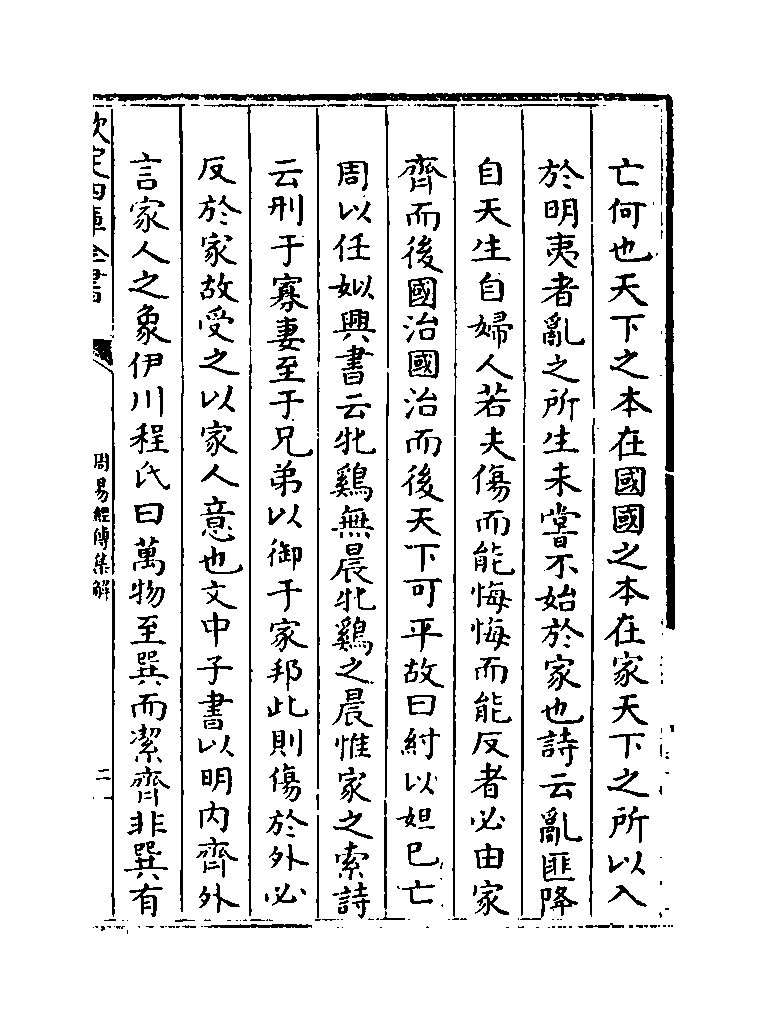 亡何也天下之本在國國之本在家天下之所以入
於明夷者亂之所生未嘗不始於家也詩云亂匪降
自天生自婦人若夫傷而能悔悔而能反者必由家
齊而後國治國治而後天下可平故曰紂以妲已亡
周以任姒興書云牝鷄無晨牝鷄之晨惟家之索詩
云刑于寡妻至于兄弟以御于家邦此則傷於外必
反於家故受之以家人意也文中子書以明内齊外
言家人之象伊川程氏曰萬物至巽而潔齊非巽有
欽定四庫全書
周易經傳集解
二